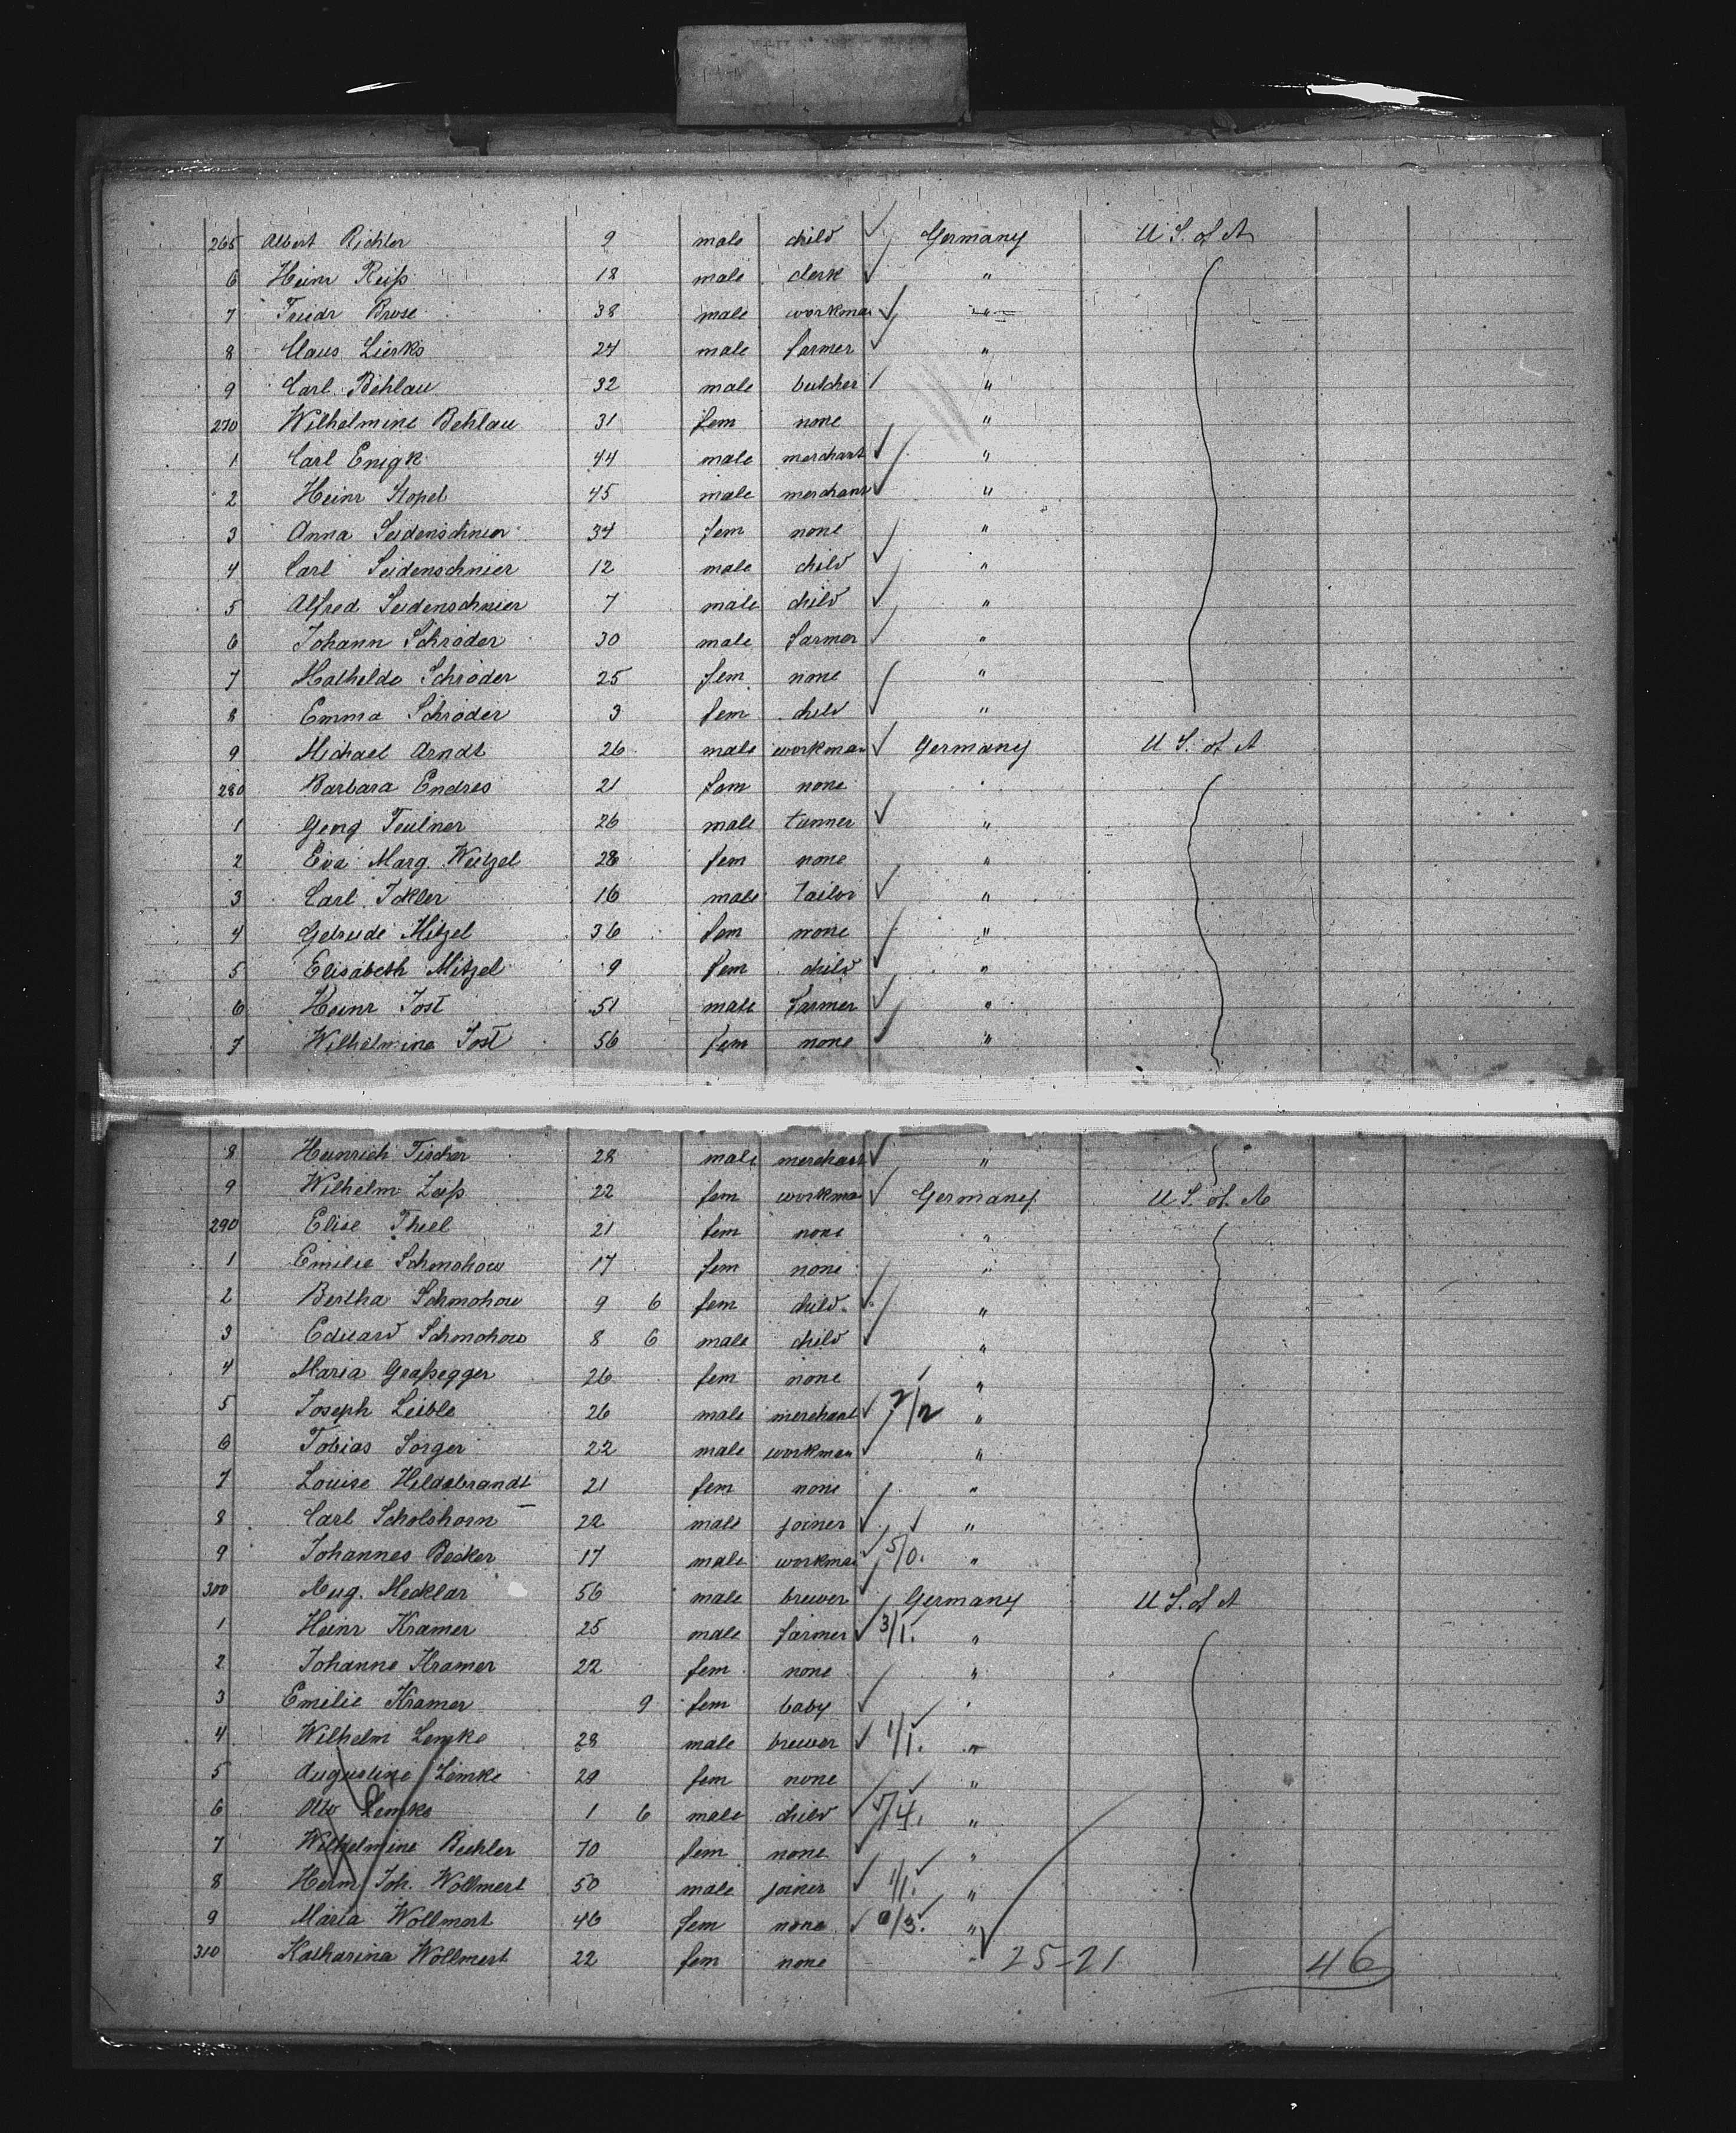 265 Albert Richter 9 male child Germany U S. of A
6 Heinr Reiß 18 male clerk "
7 Friedr Brose 38 male workman "
8 Claus Lierks 24 male farmer "
9 Carl Behlau 32 male butcher "
270 Wilhelmine Behlau 31 fem none "
1 Carl Enigk 44 male merchant "
2 Heinr Stopel 45 male merchant "
3 Anna Seidenschnier 34 fem none "
4 Carl Seidenschnier 12 male child "
5 Alfred Seidenschnier 7 male child "
6 Johann Schröder 30 male farmer "
7 Mathilde Schröder 25 fem none "
8 Emma Schröder 3 fem child "
9 Michael Arndt 26 male workman Germany U S. of A
280 Barbara Endres 21 fem none "
1 Georg Teulner 26 male tanner "
2 Eva Marg. Weitzel 28 fem none "
3 Carl Ickler 16 male tailor "
4 Getrude Mitzel 36 fem none "
5 Elisabeth Mitzel 9 fem child "
6 Heinr Jost 51 male farmer "
7 Wilhelmine Jost 56 fem none "
8 Heinrich Fischer 28 male merchant "
9 Wilhelm Leiß 22 fem workma Germany U S. of A
290 Elise Theel 21 fem none "
1 Emilie Schmohow 17 fem none "
2 Bertha Schmohow 9 6 fem child "
3 Eduard Schmohow 8 6 male child "
4 Maria Graßegger 26 fem none "
5 Joseph Leible 26 male merchant 7/2 "
6 Tobias Sorger 22 male workman "
7 Louise Hildebrandt 21 fem none "
8 Carl Scholshorn 22 male joiner "
9 Johannes Becker 17 male workman 5/0. "
300 Aug. Mecklar 56 male brewer Germany U S. of A
1 Heinr Kramer 25 male farmer 3/1. "
2 Johanne Kramer 22 fem none "
3 Emilie Kramer 9 fem baby "
4 Wilhelm Lemke 28 male brewer 1/1. "
5 Augustine Lemke 29 fem none "
6 Otto Lemke 1 6 male child 5/4. "
7 Wilhelmine Buhler 70 fem none "
8 Herm Joh. Wollmert 50 male joiner 1/1. "
9 Maria Wollmert 46 fem none 0/3. "
310 Katharina Wollmert 22 fem none " 25-21 46